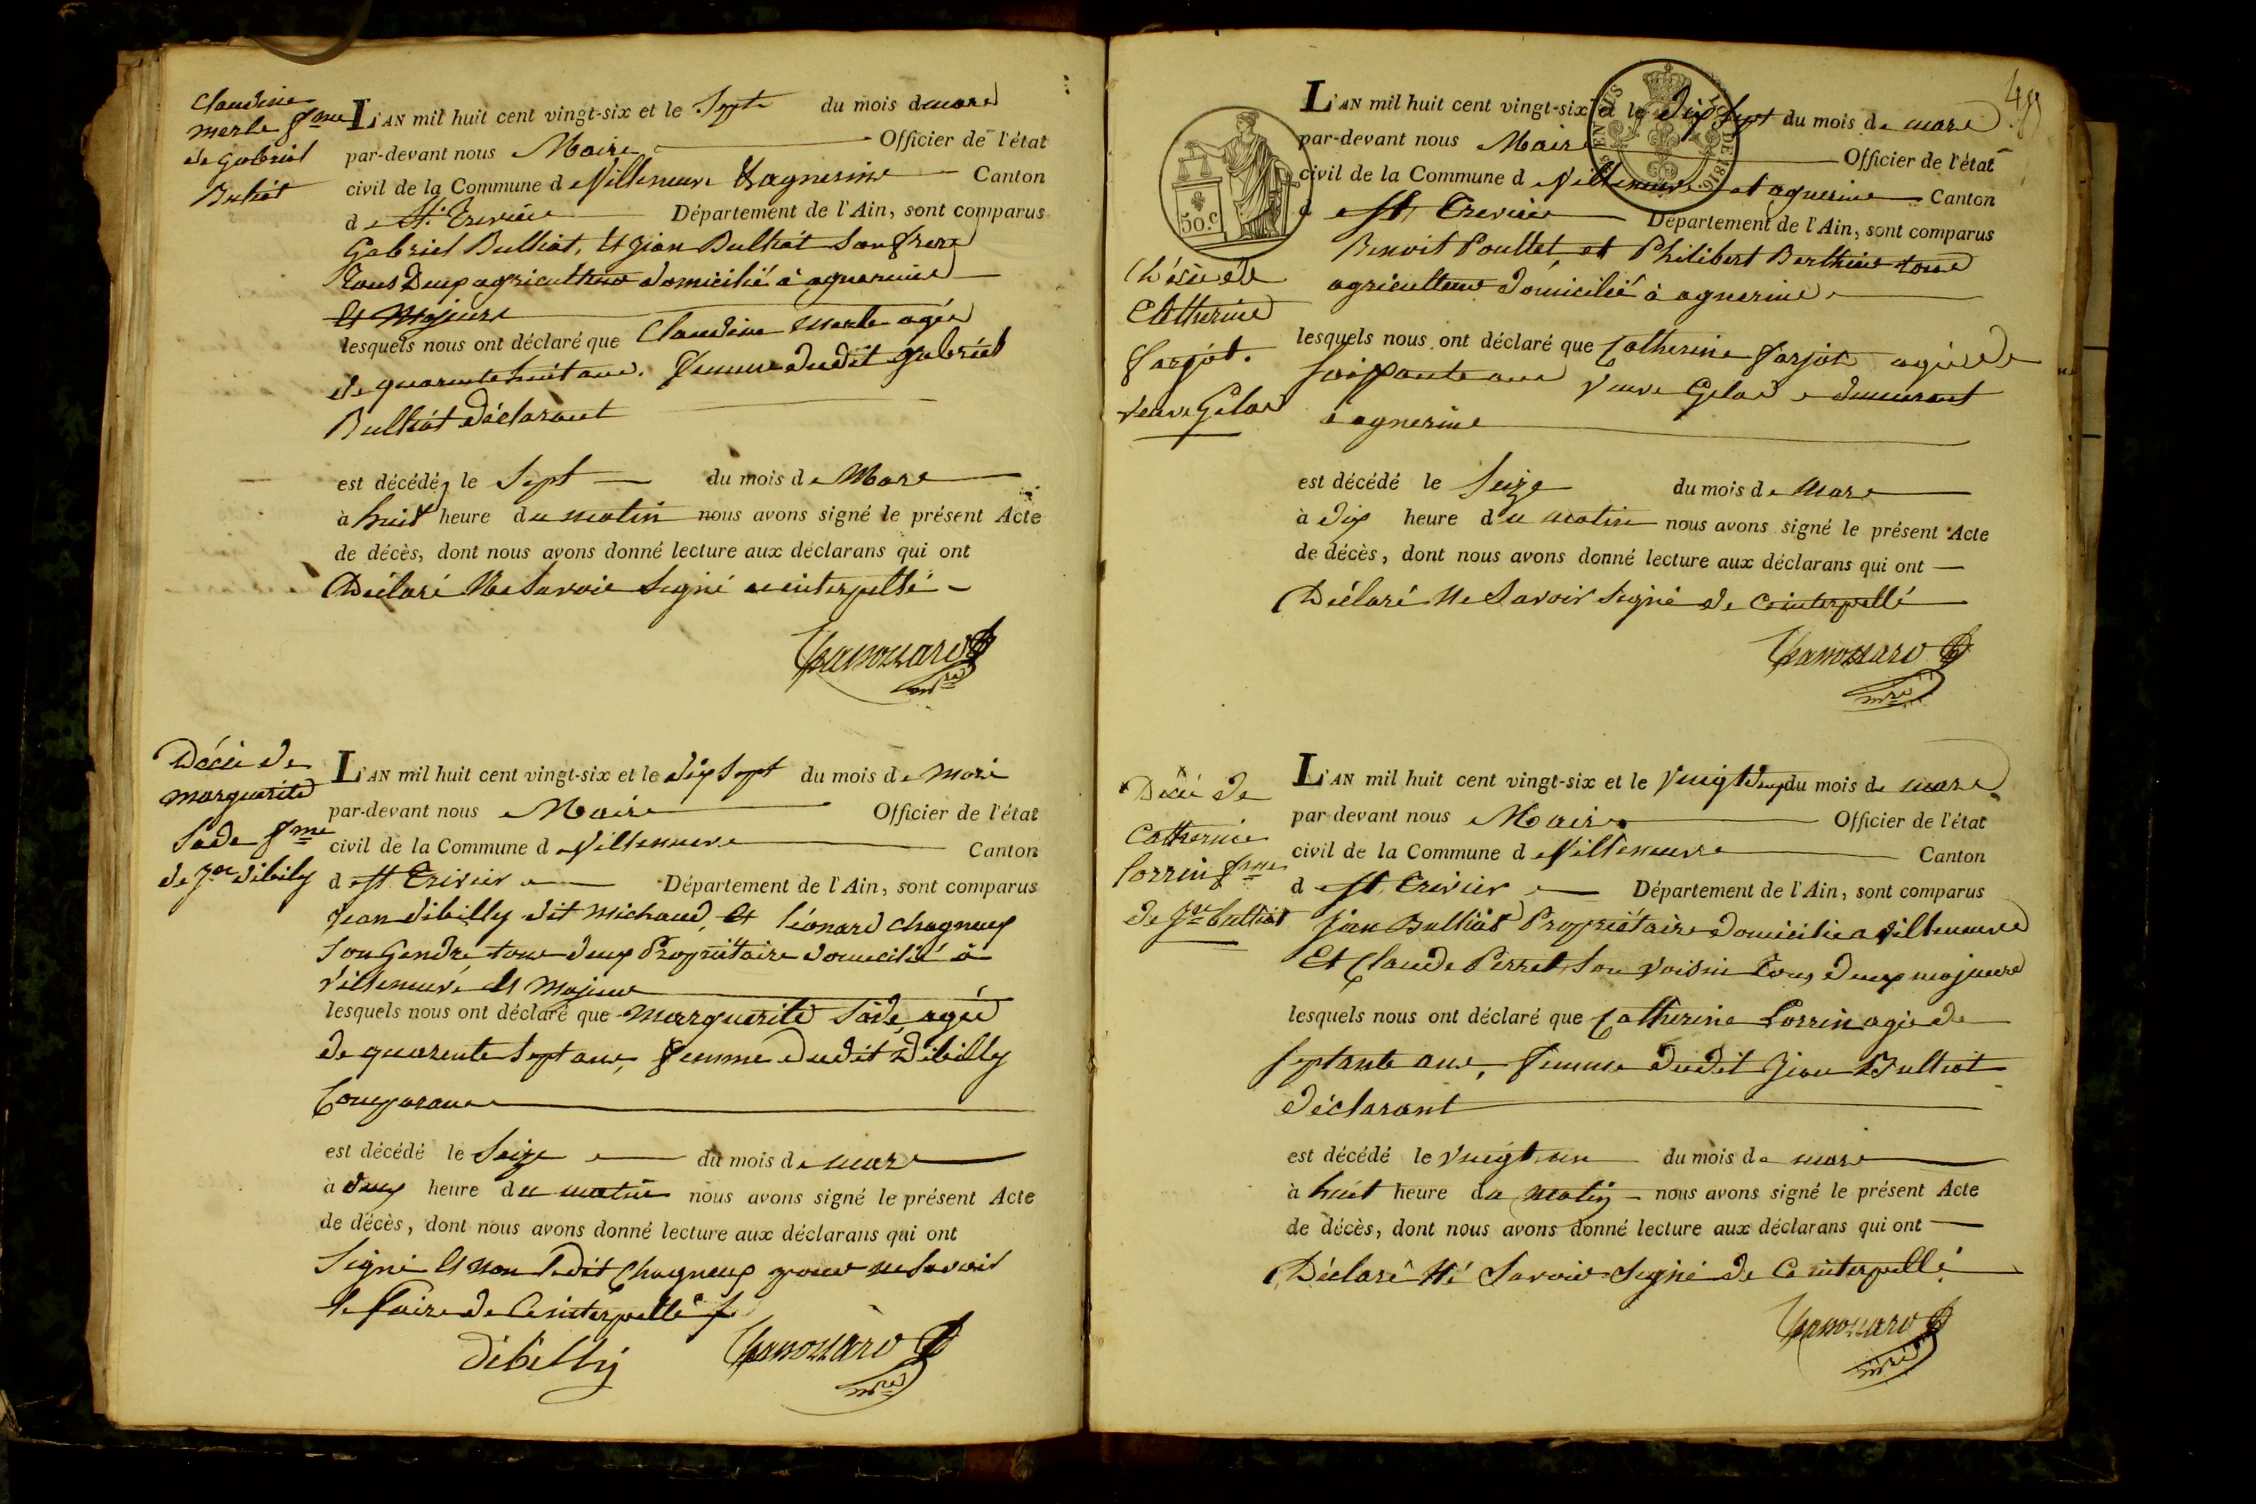 Claudine
merle fme
de gabriel
Bulliat
L'AN mil huit cent vingt-six et le Sept du mois de mars
par-devant nous Maire Officier de l'état
civil de la Commune de Villeneuve & agnerins Canton
de St. Trivier Département de l'Ain, sont comparus
Gabriel Bulliat, et Jean Bulliat Son frere
Tous Deux agriculteur domicilié à agnereins
et Majeurs
lesquels nous ont déclaré que Claudine Merle agée
de quarente huit ans. femme dudit gabriel
Bulliat déclarant
est décédé, le Sept du mois de Mars
à huit heure du matin nous avons signé le présent Acte
de décès, dont nous avons donné lecture aux déclarans qui ont
Déclaré Ne Savoir Signé ce interpellé
mre
Décé de
marguerite
Sade fme
de Jan dibily
L'AN mil huit cent vingt-six et le dix Sept du mois de Mars
par-devant nous Maire Officier de l'état
civil de la Commune de Villeneuve Canton
de St. Trivier Département de l'Ain, sont comparus
Jean dibilly dit Michaud, et léonard Chagneux
Son Gendre tous deux Propriétaire domicilié à
Villeneuve et Majeur
lesquels nous ont déclaré que Marguerite Sade, agée
de quarente Sept ans, femme dudit Dibilly
Comparant
est décédé le Seize du mois de mars
à deux heure du matin nous avons signé le présent Acte
de décès, dont nous avons donné lecture aux déclarans qui ont
Signé et non ledit Chagneux pour ne Savoir
le faire de Ce interpellé
dibilly
mre
48
50.C
DE 1816.
L'AN mil huit cent vingt-six et le Dix Sept du mois de mars
par-devant nous Maire Officier de l'état
civil de la Commune de Villeneuve et agnerins Canton
de St. Trivier Département de l'Ain, sont comparus
Benoit Poullet, et Philibert Berthier tous
agriculteur domicilié à agnerins
Décè de
Catherine
farjot.
veuve Gelas
lesquels nous ont déclaré que Catherine farjot agée de
Soixante ans Veuve Gelas demeurant
à agnerins
est décédé le Seize du mois de mars
à dix heure du matin nous avons signé le présent Acte
de décès, dont nous avons donné lecture aux déclarans qui ont
Déclaré Ne Savoir Signé de Ce interpellé
mre
Décé de
Catherine
Corrin fme
de Jn bulliat
L'AN mil huit cent vingt-six et le Vingt deux du mois de mars
par-devant nous Maire Officier de l'état
civil de la Commune de Villeneuve Canton
de St. Trivier Département de l'Ain, sont comparus
Jean Bulliat Propriétaire domicilié à Villeneuve
Et Claude Perret Son Voisin Tous deux majeurs
lesquels nous ont déclaré que Catherine Corrin agée de
Septante ans, femme dudit Jean Bulliat
déclarant
est décédé le Vingt un du mois de mars
à huit heure du matin nous avons signé le présent Acte
de décès, dont nous avons donné lecture aux déclarans qui ont
Déclaré Né Savoir Signé de Ce interpellé
mre